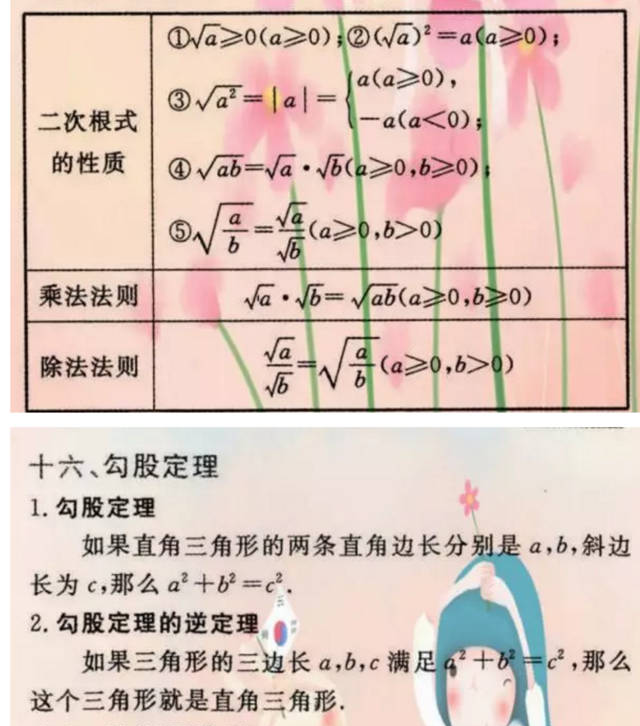 ①√a≥0(a≥0);②(√a)²=a(a≥0);
③√a²=|a|={a(a≥0),
-a(a<0);
二次根式
的性质
④√ab=√a·√b(a≥0,b≥0);
⑤√(a/b)=√a/√b(a≥0,b>0)
乘法法则 √a·√b=√ab(a≥0,b≥0)
除法法则 √a/√b=√(a/b)(a≥0,b>0)
十六、勾股定理
1.勾股定理
如果直角三角形的两条直角边长分别是a,b,斜边
长为c,那么a²+b²=c².
2.勾股定理的逆定理
如果三角形的三边长a,b,c满足a²+b²=c²,那么
这个三角形就是直角三角形.